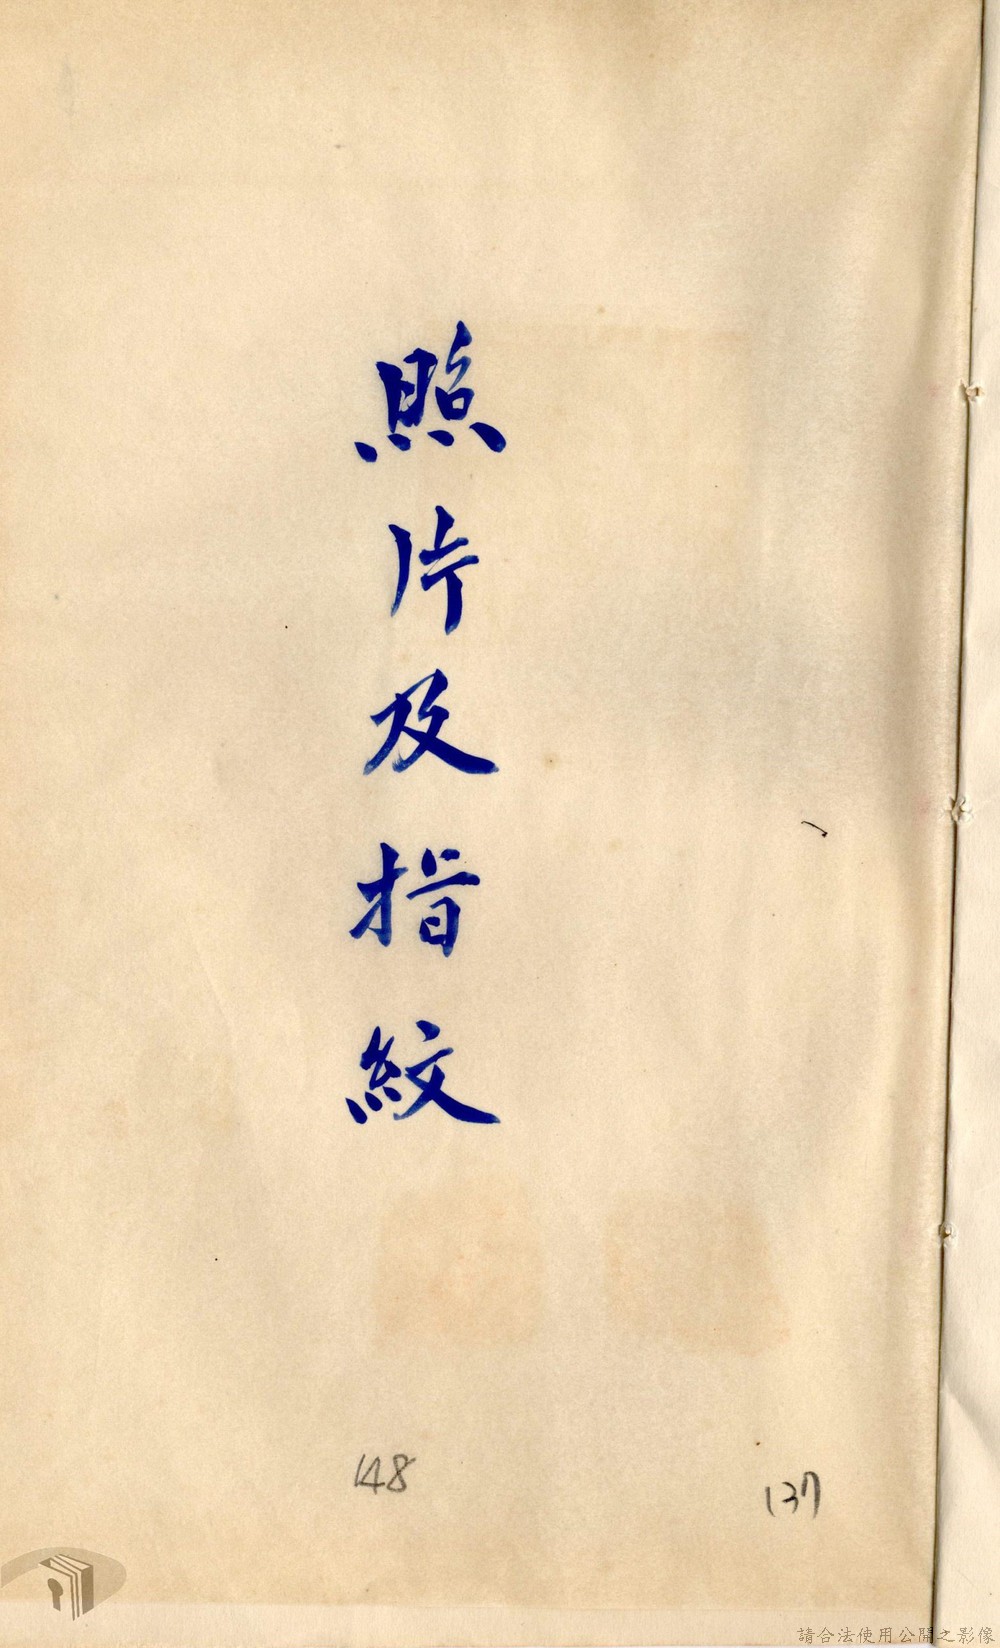 照片及指紋
148
137
請合法使用公開之影像